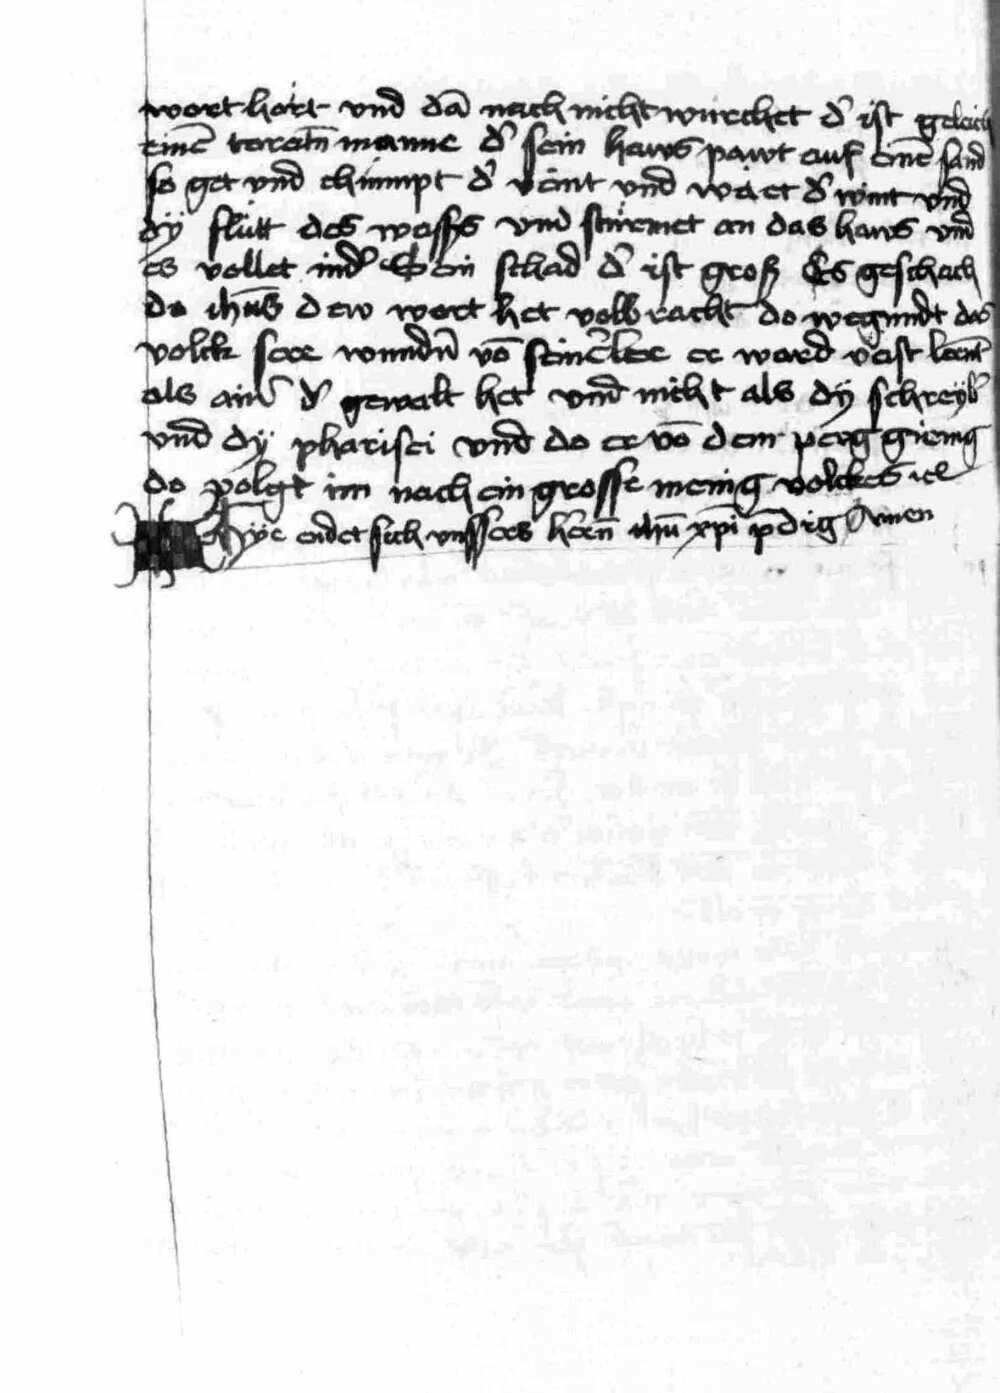 wort hort vnd dā nach nicht würchet d' ist geleich
einē toratn̄ manne d' sein haws pawt auf einē sand
so get vnd chümpt d' wint vnd wäet d' wint vnd
dÿ flütt des wassers vnd stürmet an das haws vnd
es vellet nid' Sein schad d' ist groß Es geschach
do ih̄us dew wort het volbracht do wegundt das
volck sere wundn̄ vō seiner ler er ward vast
als ain' d' gewalt het vnd nicht als dÿ schreyb'
vnd dÿ pharisei vnd do er vō dem perg gieng
do volgt im nach ein grosse menig volckes
Hye endet sich vnssers herñ ih̄u xp̄i p̄dig Amen